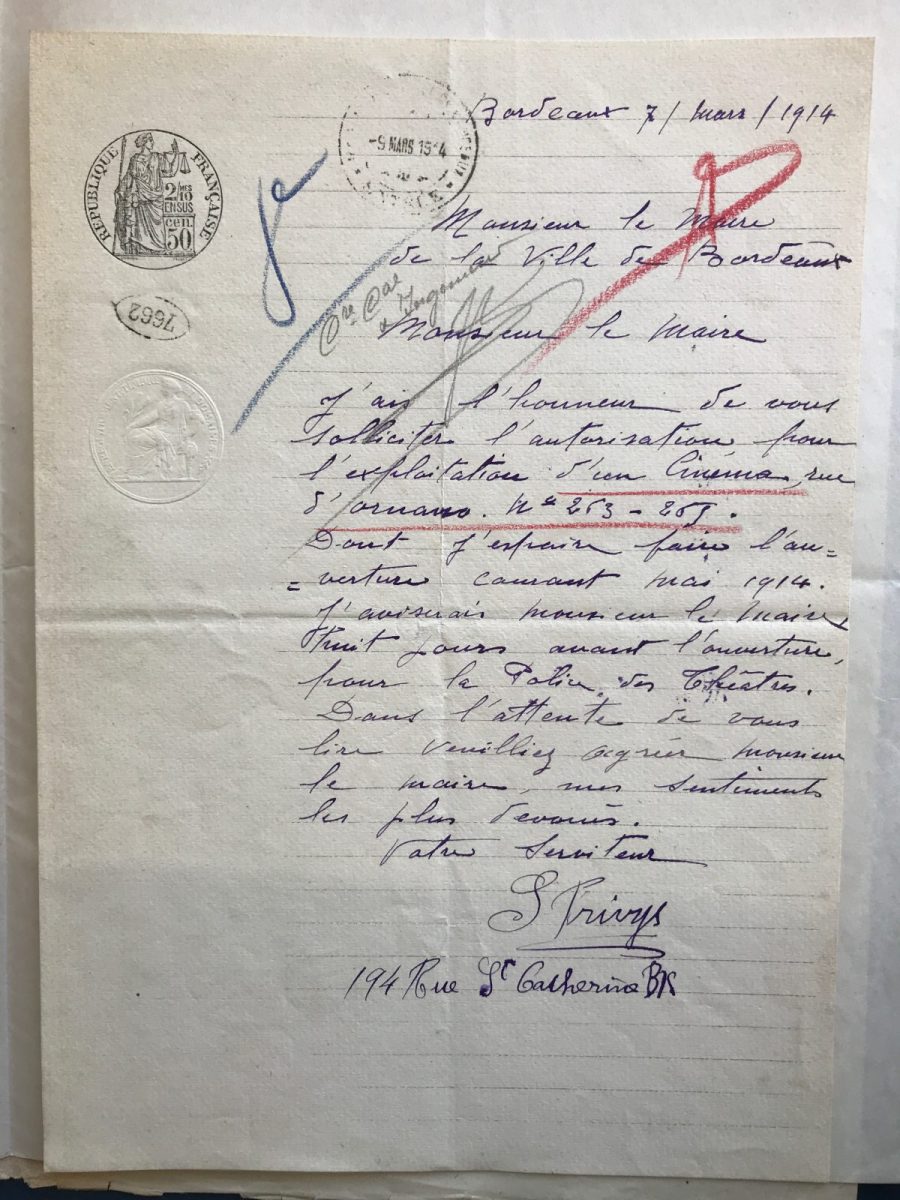 Bordeaux 7 / mars / 1914
RÉPUBLIQUE FRANÇAISE
2/10 MES
EN SUS
50 cen.
-9 MARS 1914
7662
Monsieur le Maire
de la Ville de Bordeaux
Monsieur le Maire
J'ais l'honneur de vous
solliciter l'autorisation pour
l'exploitation d'un Cinéma, rue
d'ornano. Nos 263 - 265.
Dont j'espaire faire l'ou=
=verture courant mai 1914.
J'aviserais monsieur le Maire,
huit jours avant l'ouverture,
pour la Police des Théâtres.
Dans l'attente de vous
lire veuilliez agréer monsieur
le maire, mes sentiments
les plus devoués.
Votre Serviteur
S Privys
194 Rue St Catherine BX